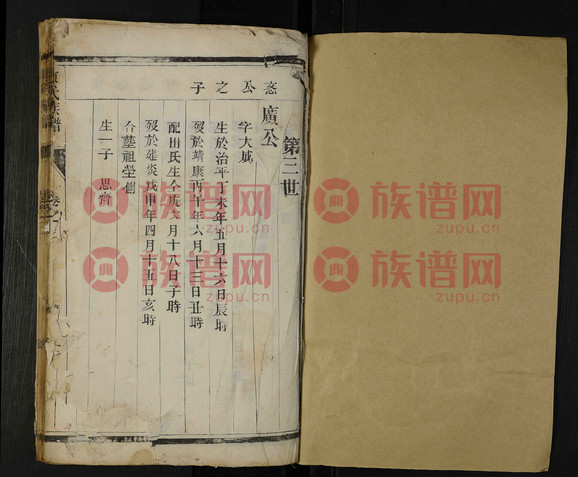 第三世
憲公之子
廣公
字大威
生於治平丁未年五月十六日辰時
歿於靖康丙午年六月十三日丑時
配田氏生仝庚六月十八日子時
歿於建炎戊申年四月十五日亥時
合塟祖塋
生一子 思齊
氏族譜
族谱网
zupu.cn
族谱网
zupu.cn
族谱网
zupu.cn
族谱网
zupu.cn